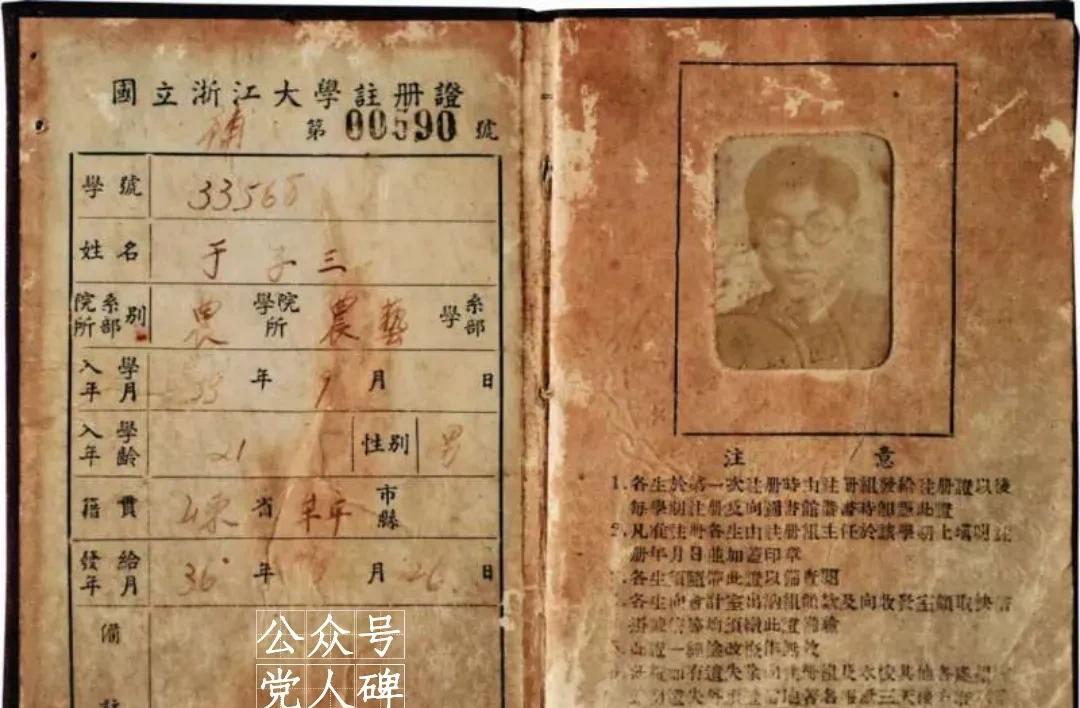 國立浙江大學註册證
補
第 00590 號
學號 33565
姓名 于子三
院系所部別 農 學院所 農藝 學系部
入學年月 33 年 9 月 日
入學年齡 21 性別 男
籍貫 山東 省 牟平 市縣
發給年月 36 年 月 26 日
備
公众号
党人碑
注 意
1. 各生於第一次註册時由註册組發給註册證以後
每學期註册及向圖書館借書時須憑此證
2. 凡准註册各生由註册組主任於該學期上填明註
册年月日並加蓋印章
各生須隨帶此證以備查閱
各生向會計室出納組領款及向收發室領取快信
掛號 均須繳此證 驗
此證一經塗改 作無效
有遺失 向註册組及 其他各處